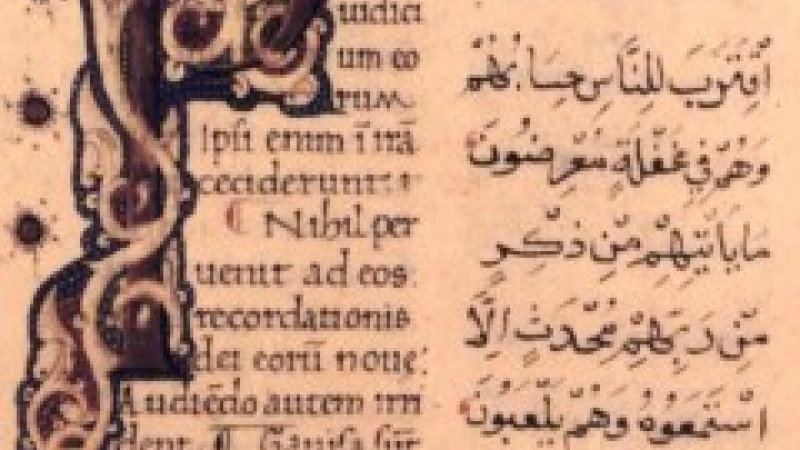 uidici
um eo
rum
Ipsi enim ī irā
ceciderunt
¶ Nihil per
uenit ad eos:
recordationis
dei eorū noue:
Audiēdo autem irri
dent. Gauisa sūt
اِقْتَرَبَ لِلنَّاسِ حِسَابُهُمْ
وَهُمْ فِي غَفْلَةٍ مُعْرِضُونَ
مَا يَأْتِيهِمْ مِنْ ذِكْرٍ
مِنْ رَبِهِمْ مُحْدَثٍ اِلَّا
اسْتَمَعُوهُ وَهُمْ يَلْعَبُونَ